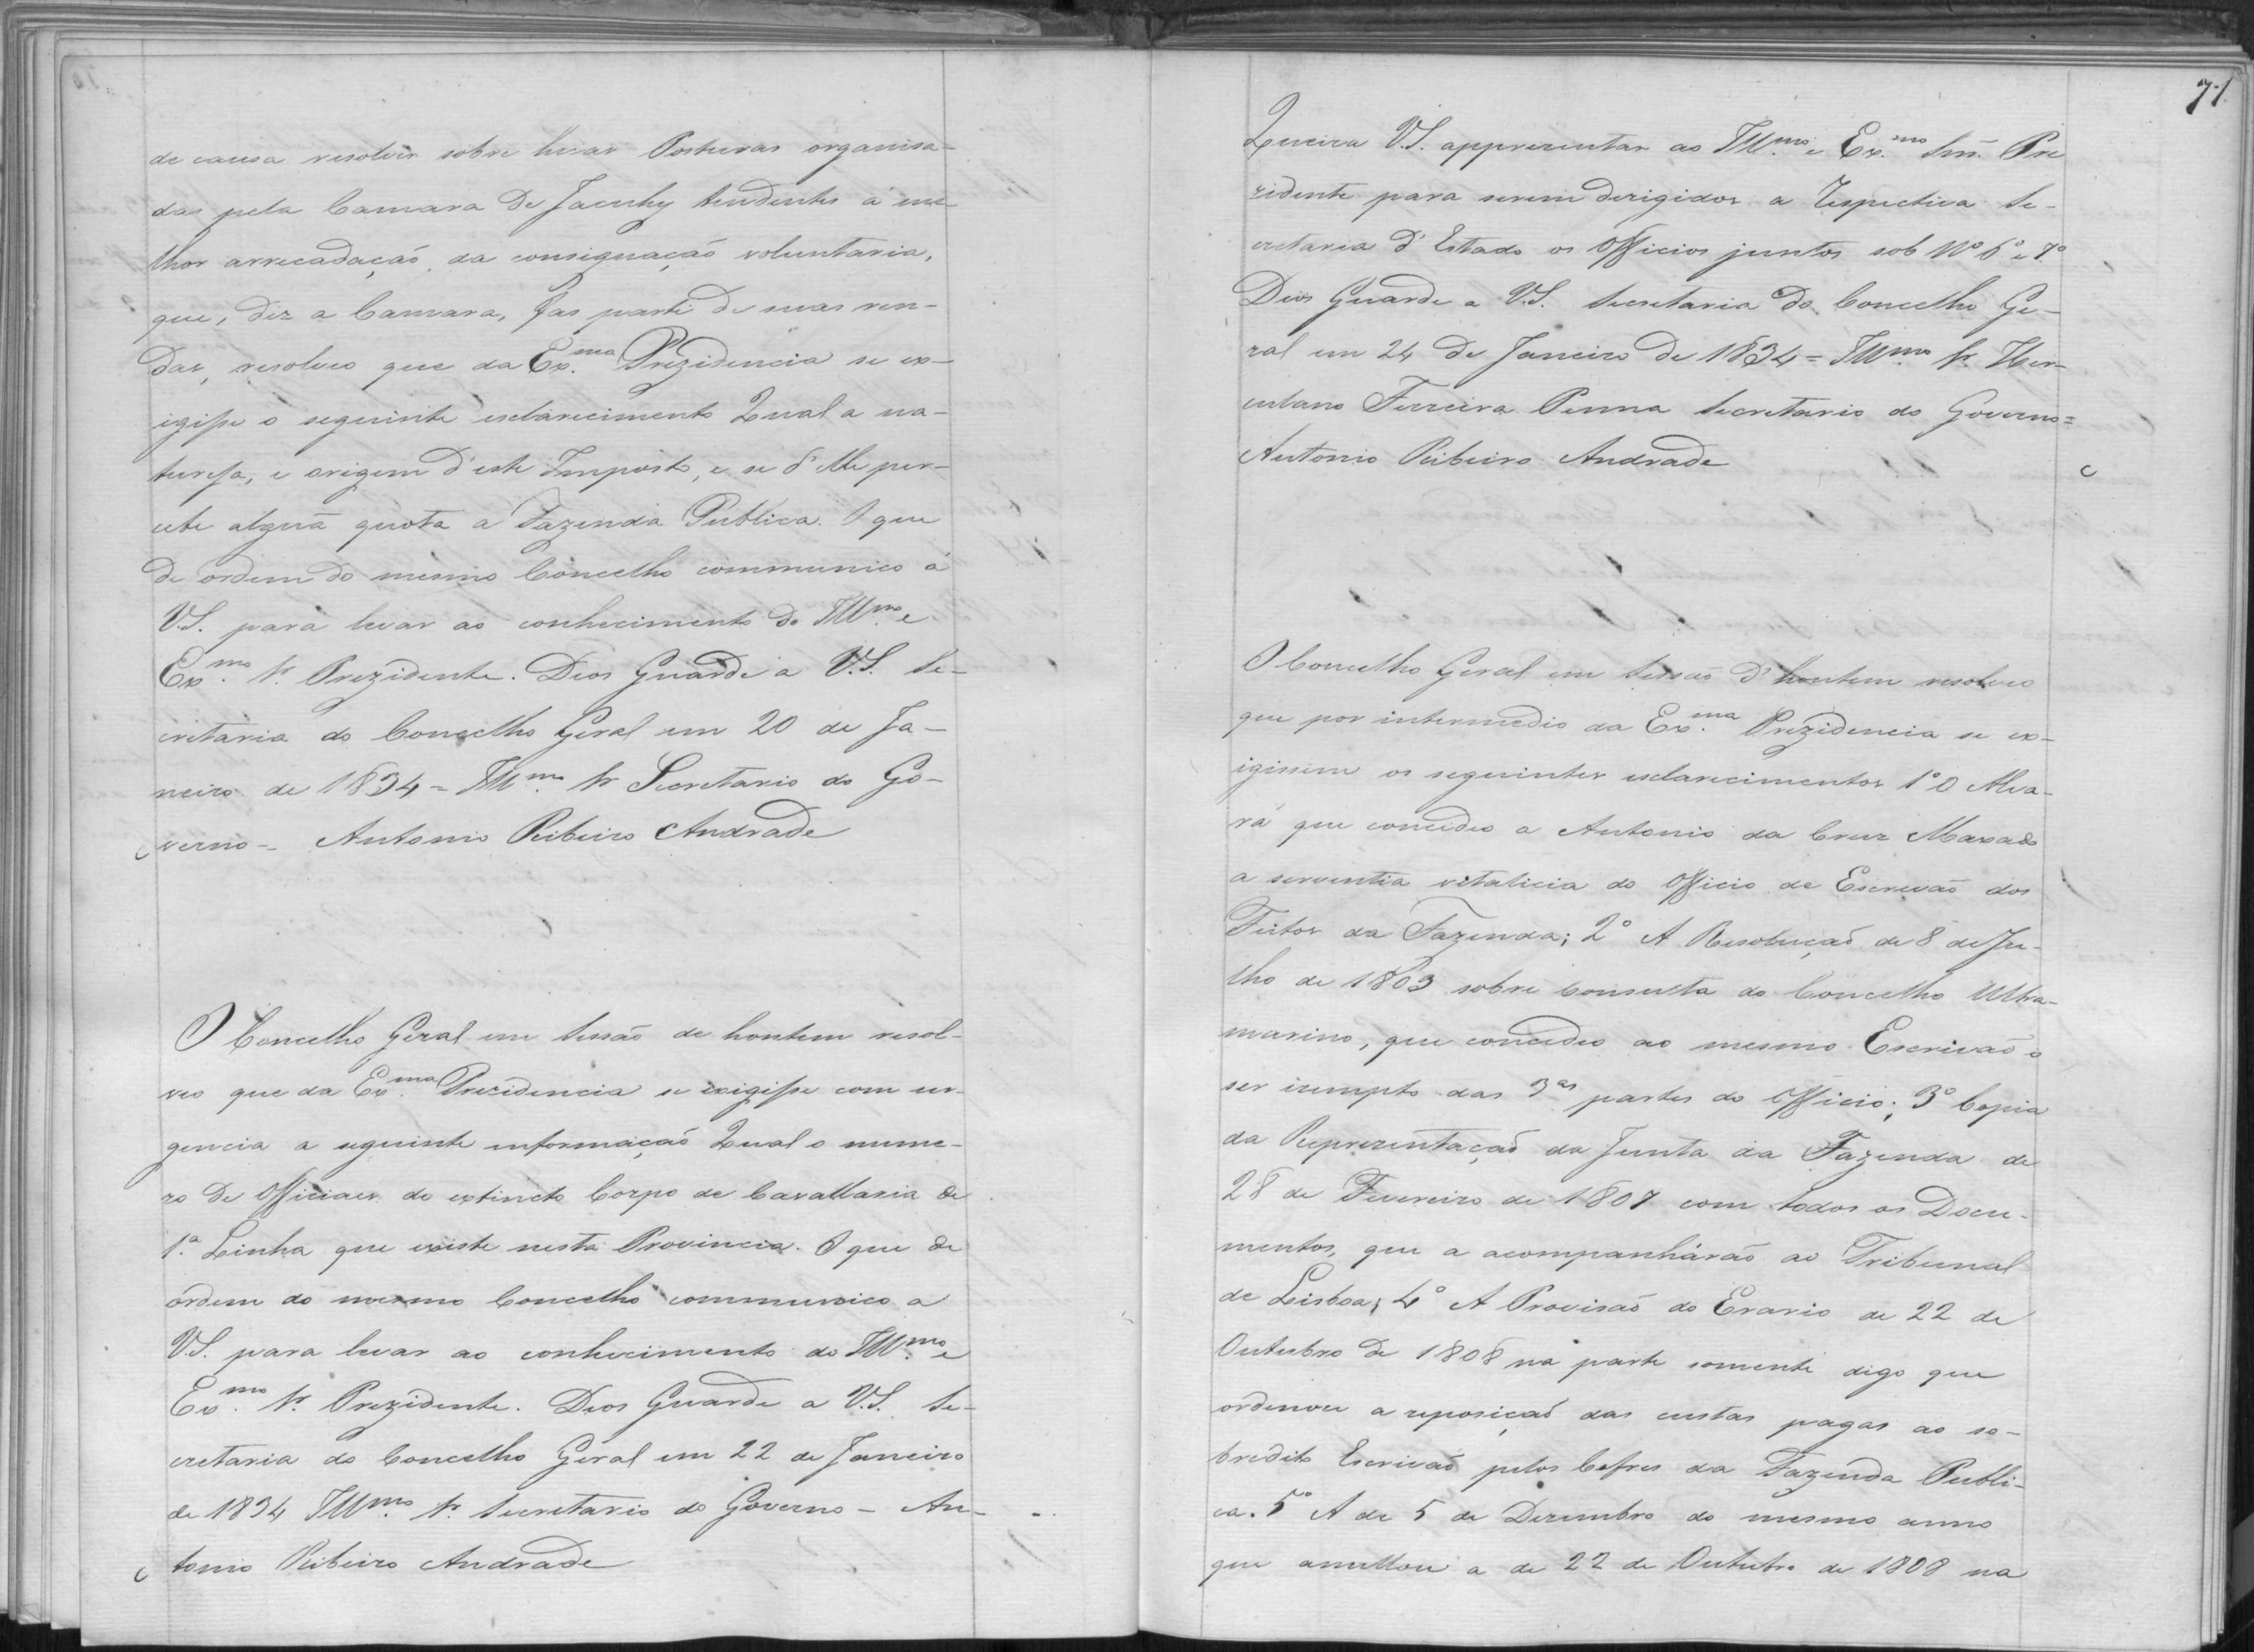 de causa resolver sobre huas Posturas organisa-
das pela Camara de Jacuhy tendentes á me-
lhor arrecadação da consignação voluntaria,
que, diz a Camara, fas parte de suas ren-
das, resolveo que da Ex.ma Prezidencia se ex-
igisse o seguinte esclarecimento Qual a na-
turesa, e origem d'este Imposto, e se d'elle per-
cebe alguã quota a Fazenda Publica. O que
de ordem do mesmo Concelho communico á
V.S. para levar ao conhecimento do Illm.o e
Ex.mo Sr. Prezidente. Deos Guarde a V.S. Se-
cretaria do Concelho Geral em 20 de Ja-
neiro de 1834 = Illm.o Sr Secretario do Go-
verno - Antonio Ribeiro Andrade
O Concelho Geral em Sessão de hontem resol-
veo que da Ex.ma Prezidencia se exigisse com ur-
gencia a seguinte informação Qual o nume-
ro de Officiaes do extincto Corpo de Cavallaria de
1.ª Linha que existe nesta Provincia. O que de
ordem do mesmo Concelho communico a
V.S. para levar ao conhecimento do Illm.o e
Ex.mo Sr. Prezidente. Deos Guarde a V.S. Se-
cretaria do Concelho Geral em 22 de Janeiro
de 1834 Illm.o Sr. Secretario do Governo - An-
tonio Ribeiro Andrade
71
Queira V.S. apprezentar ao Illm.o e Ex.mo Snr. Pre
zidente para serem dirigidos a Respectiva Se-
cretaria d'Estado os Officios juntos sob Nº 6º e 7º
Deos Guarde a V.S. Secretaria do Concelho Ge-
ral em 24 de Janeiro de 1834 = Illm.o Sr. Her-
culano Ferreira Penna Secretario do Governo =
Antonio Ribeiro Andrade
O Concelho Geral em Sessão d'hontem resolveo
que por intermedio da Ex.ma Prezidencia se ex-
igissem os seguintes esclarecimentos 1º O Alva-
rá que concedeo a Antonio da Cruz Maxado
a serventia vitalicia do Officio de Escrivão dos
Feitos da Fazenda; 2º A Resolução de 8 de Ju-
lho de 1803 sobre Consulta do Concelho Ultra-
marino, que concedeo ao mesmo Escrivão o
ser izempto das 3as partes do Officio; 3º Copia
da Reprezentação da Junta da Fazenda de
28 de Fevereiro de 1807 com todos os Docu-
mentos, que a acompanhárão ao Tribunal
de Lisboa; 4º A Provisão do Erario de 22 de
Outubro de 1808 na parte somente digo que
ordenou a reposição das custas pagas ao so-
bredito Escrivão pelos Cofres da Fazenda Publi-
ca. 5º A de 5 de Dezembro do mesmo anno
que anullou a de 22 de Outubro de 1808 na